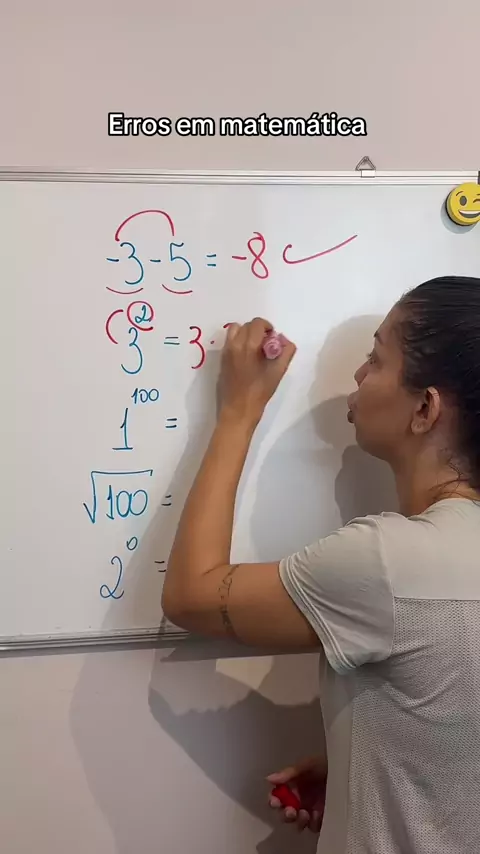 Erros em matemática
-3-5 = -8
3² = 3·
1¹⁰⁰ =
√100 =
2⁰ =